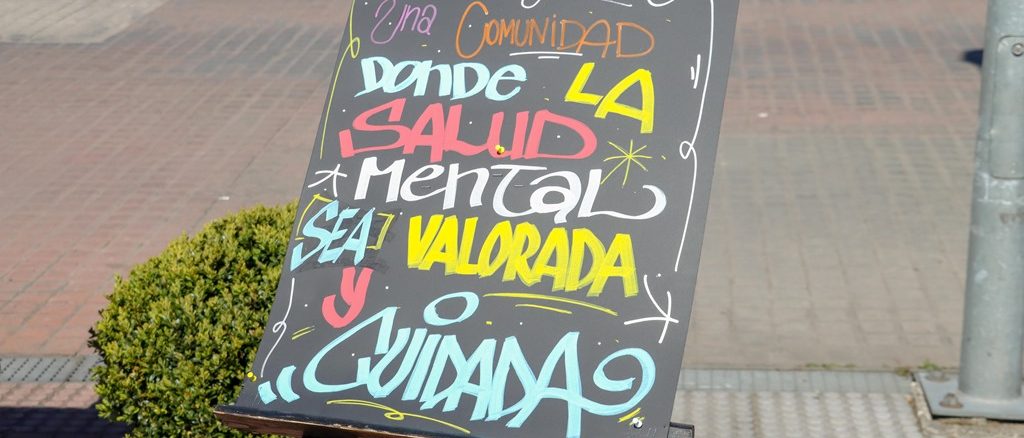 Una Comunidad
Donde La
Salud
Mental
Sea Valorada
Y
Cuidada